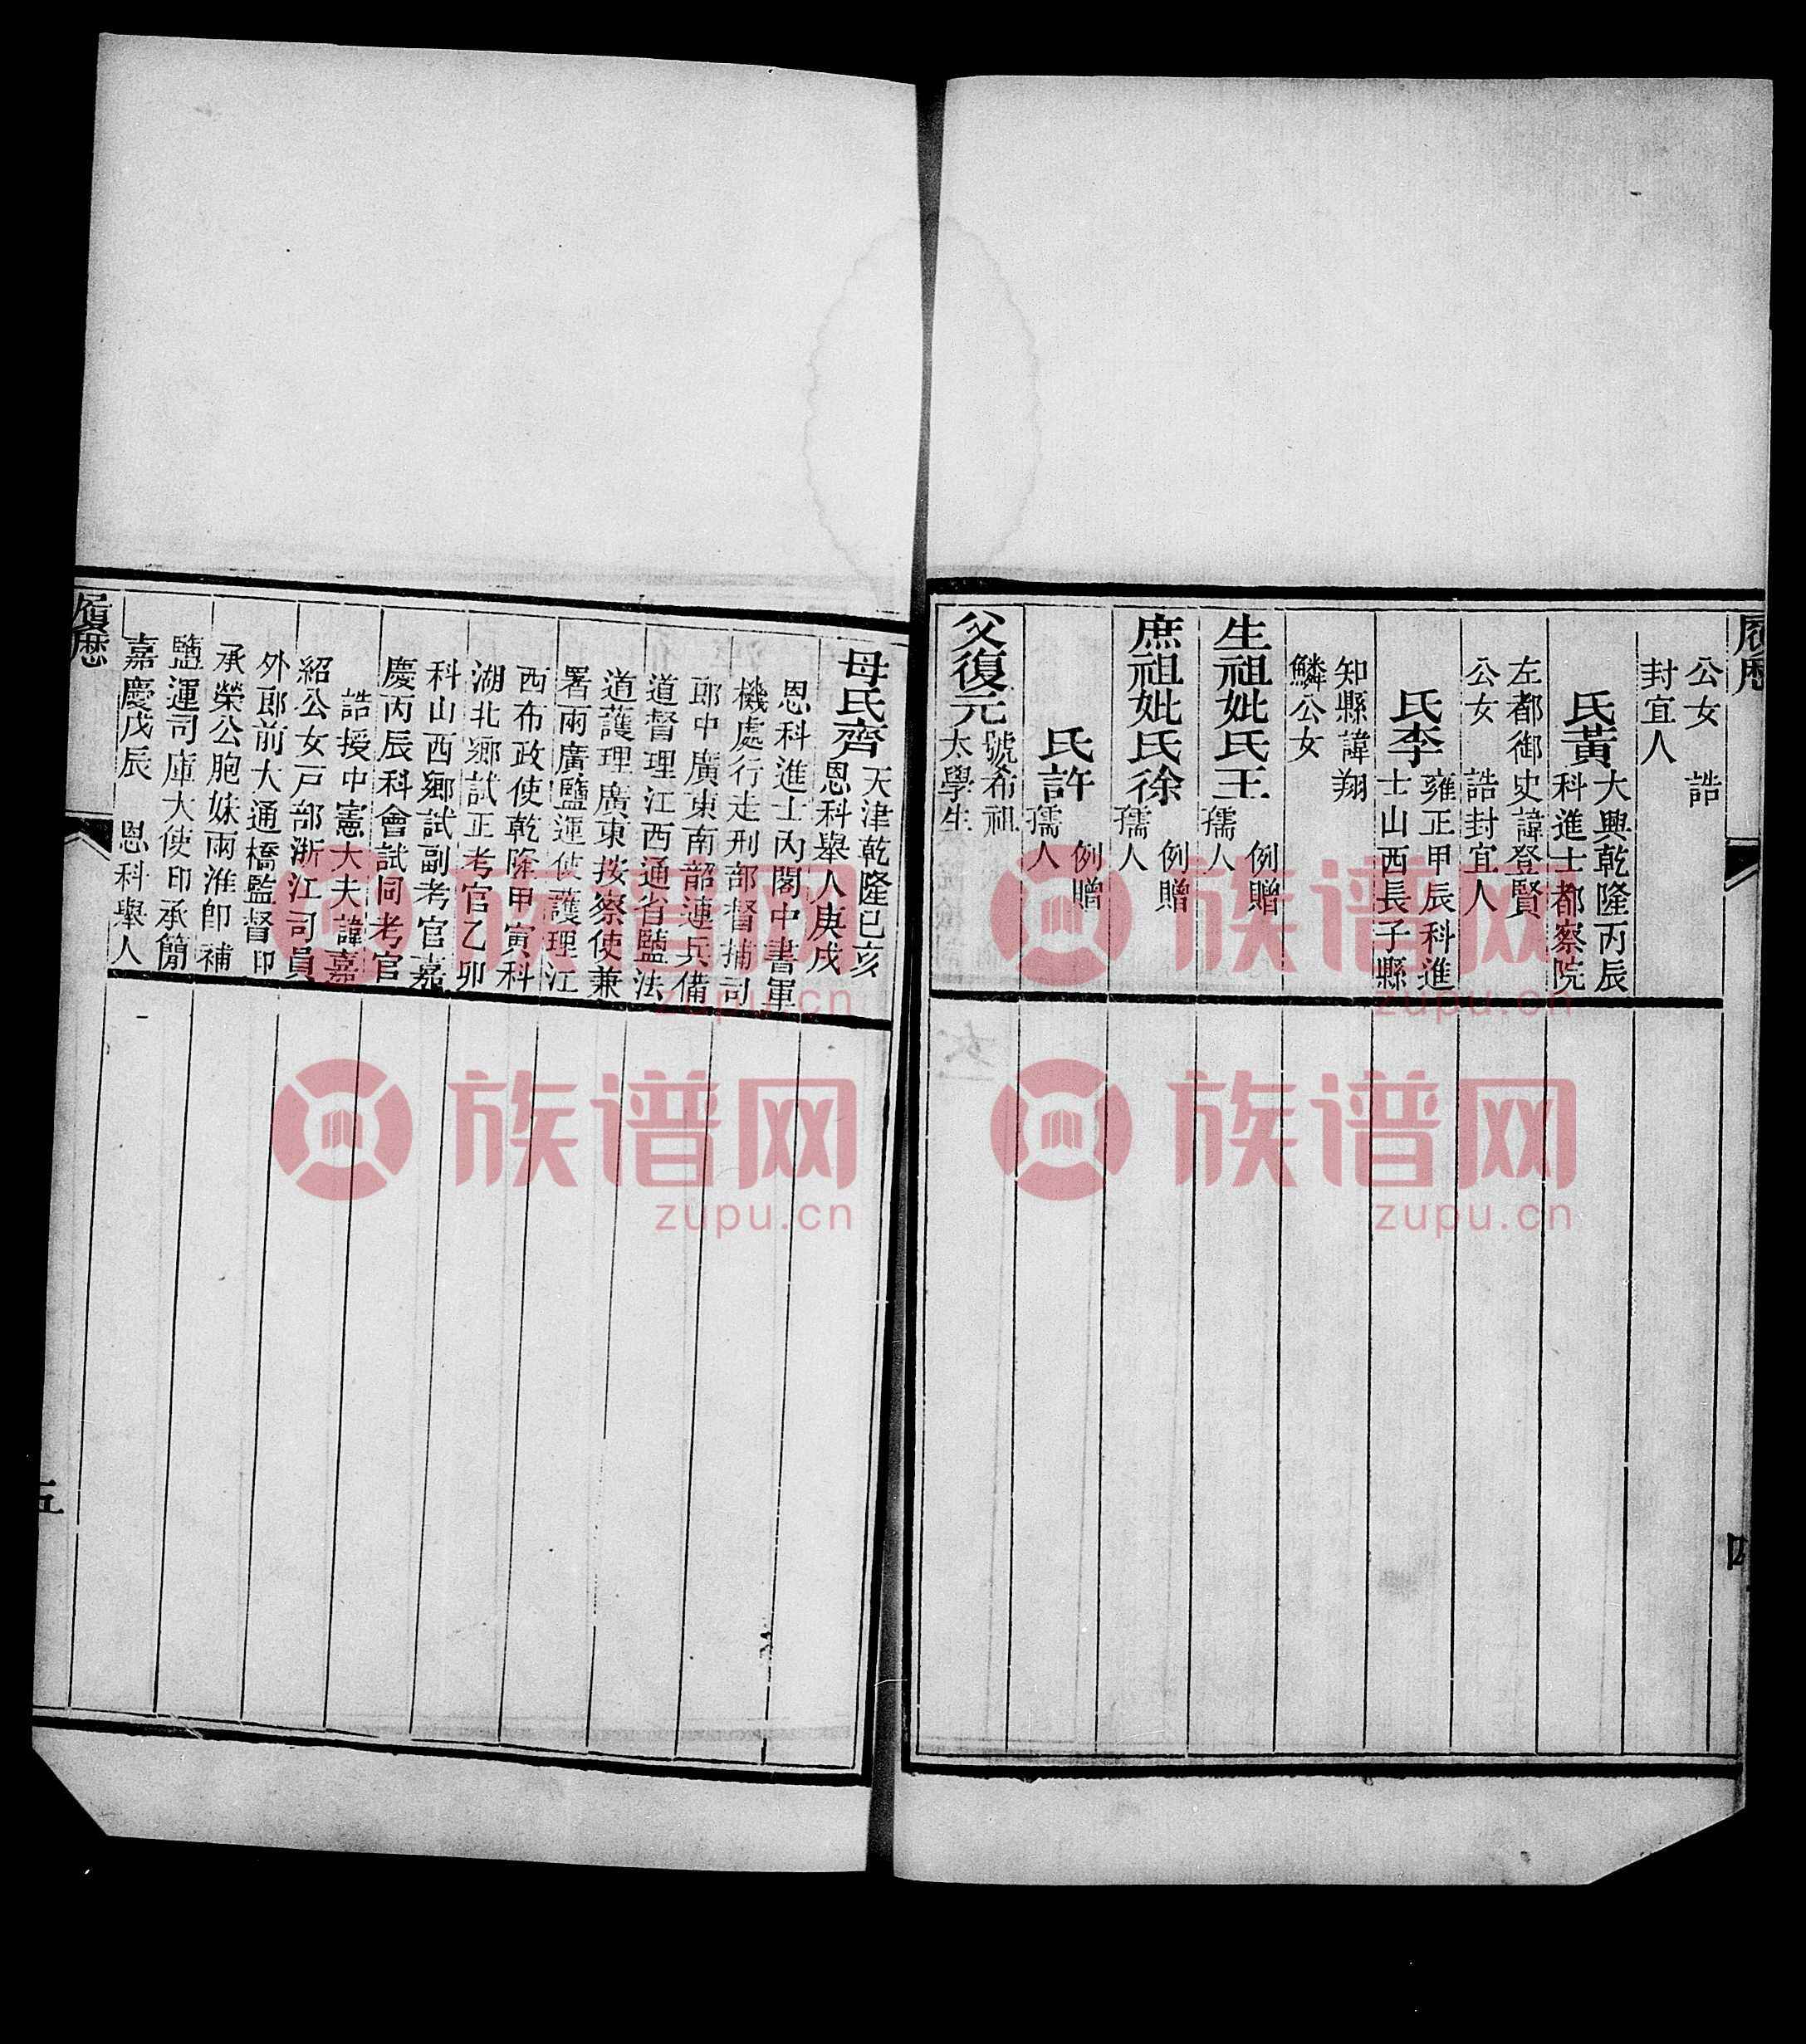 履歷
公女　誥
封宜人
氏黃
大興乾隆丙辰
科進士都察院
左都御史諱登賢
公女　誥封宜人
氏李
雍正甲辰科進
士山西長子縣
知縣諱翔
鱗公女
生祖妣氏王
例贈
孺人
庶祖妣氏徐
例贈
孺人
氏許
例贈
孺人
父復元
號希祖
太學生
四
母氏齊
天津乾隆己亥
恩科舉人庚戌
恩科進士內閣中書軍
機處行走刑部督捕司
郎中廣東南韶連兵備
道督理江西通省鹽法
道護理廣東按察使兼
署兩廣鹽運使護理江
西布政使乾隆甲寅科
湖北鄉試正考官乙卯
科山西鄉試副考官嘉
慶丙辰科會試同考官
誥授中憲大夫諱嘉
紹公女戶部浙江司員
外郎前大通橋監督印
承榮公胞妹兩淮即補
鹽運司庫大使印承簡
嘉慶戊辰　恩科舉人
履歷
五
族谱网
zupu.cn
族谱网
zupu.cn
族谱网
zupu.cn
族谱网
zupu.cn